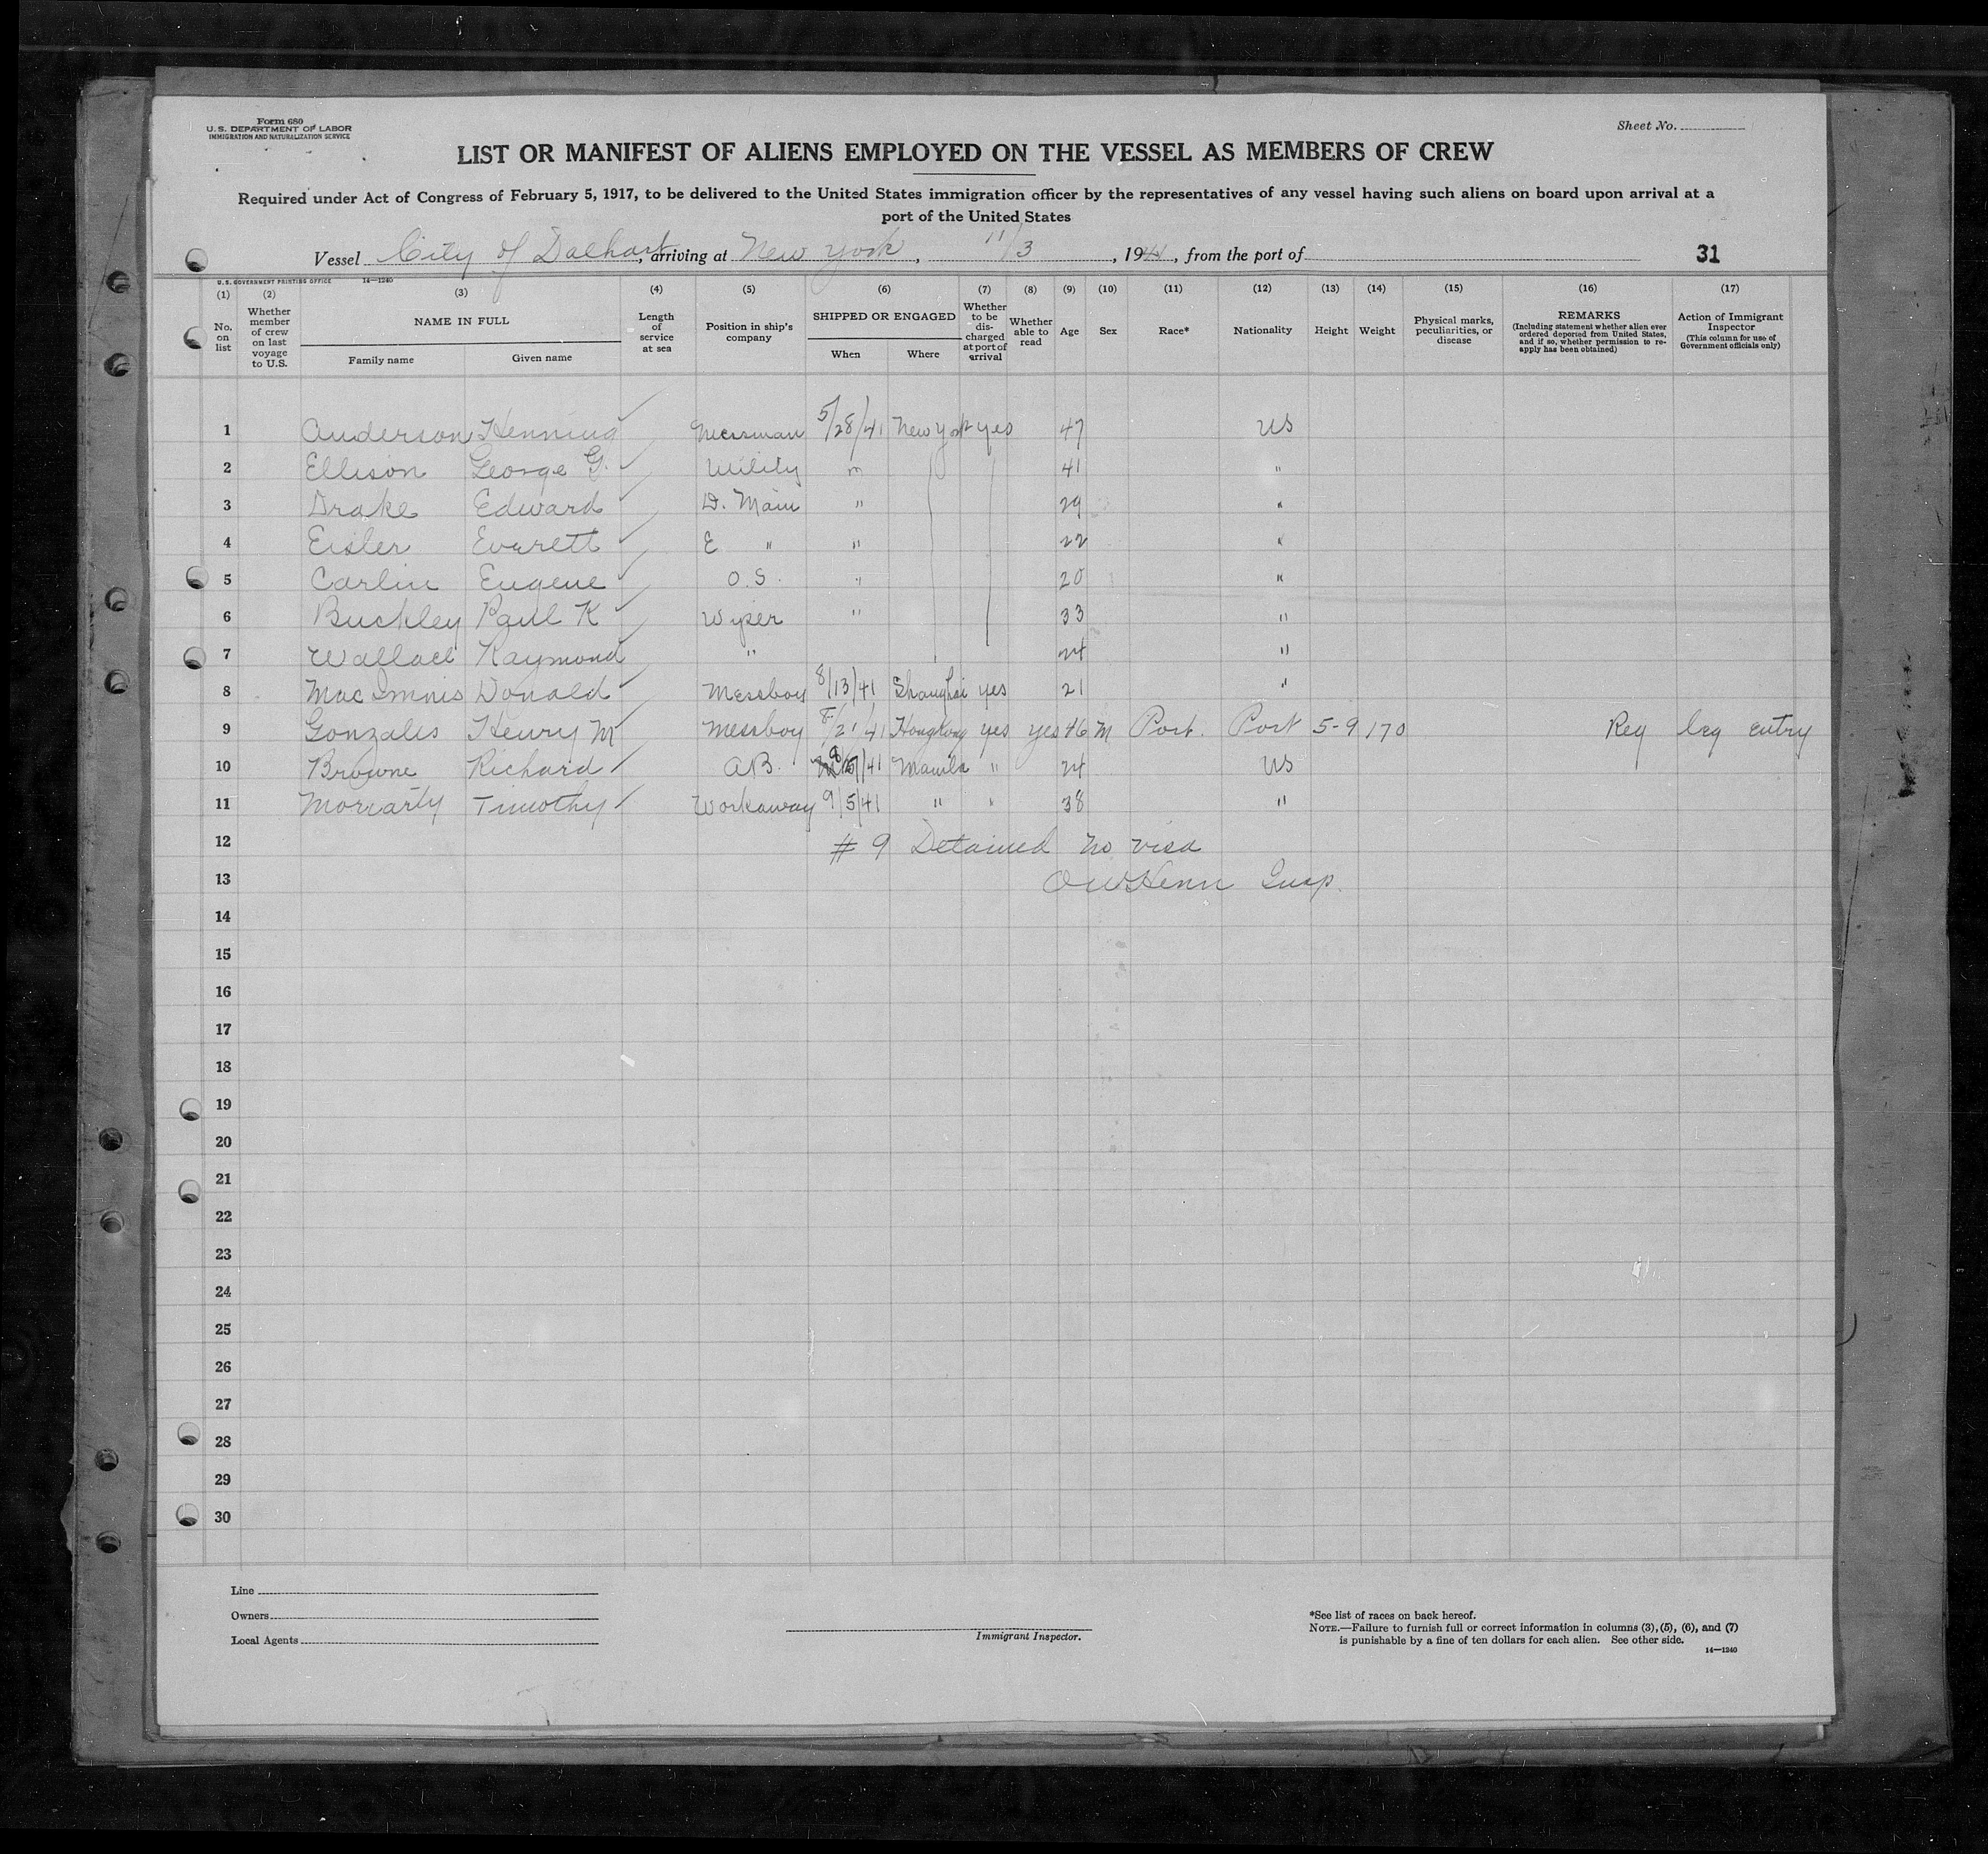 Form 680
U. S. DEPARTMENT OF LABOR
IMMIGRATION AND NATURALIZATION SERVICE
Sheet No.
LIST OR MANIFEST OF ALIENS EMPLOYED ON THE VESSEL AS MEMBERS OF CREW
Required under Act of Congress of February 5, 1917, to be delivered to the United States immigration officer by the representatives of any vessel having such aliens on board upon arrival at a
port of the United States
Vessel City of Dalhart, arriving at New York, 11/3, 1941, from the port of 31
U. S. GOVERNMENT PRINTING OFFICE 14—1240
(1) (2) (3) (4) (5) (6) (7) (8) (9) (10) (11) (12) (13) (14) (15) (16) (17)
No. on list
Whether member of crew on last voyage to U.S.
NAME IN FULL
Family name Given name
Length of service at sea
Position in ship's company
SHIPPED OR ENGAGED
When Where
Whether to be discharged at port of arrival
Whether able to read
Age
Sex
Race*
Nationality
Height
Weight
Physical marks, peculiarities, or disease
REMARKS
(Including statement whether alien ever ordered deported from United States, and if so, whether permission to reapply has been obtained)
Action of Immigrant Inspector
(This column for use of Government officials only)
1 Anderson Henning Messman 5/28/41 New York yes 47 US
2 Ellison George G. Utility " 41 "
3 Drake Edward D. Main " 29 "
4 Eisler Everett E " " 22 "
5 Carlin Eugene O.S. " 20 "
6 Buckley Paul K Wiper " 33 "
7 Wallace Raymond " 24 "
8 MacImnis Donald Messboy 8/13/41 Shanghai yes 21 "
9 Gonzales Henry M Messboy 8/21/41 Hongkong yes yes 46 M Port. Port 5-9 170 Reg leg entry
10 Browne Richard A.B. /41 Manila " 24 US
11 Moriarty Timothy Workaway 9/5/41 " " 38 "
12 # 9 Detained no visa
13 Insp.
14
15
16
17
18
19
20
21
22
23
24
25
26
27
28
29
30
Line
Owners
Local Agents
Immigrant Inspector.
*See list of races on back hereof.
NOTE.—Failure to furnish full or correct information in columns (3), (5), (6), and (7)
is punishable by a fine of ten dollars for each alien. See other side.
14—1240